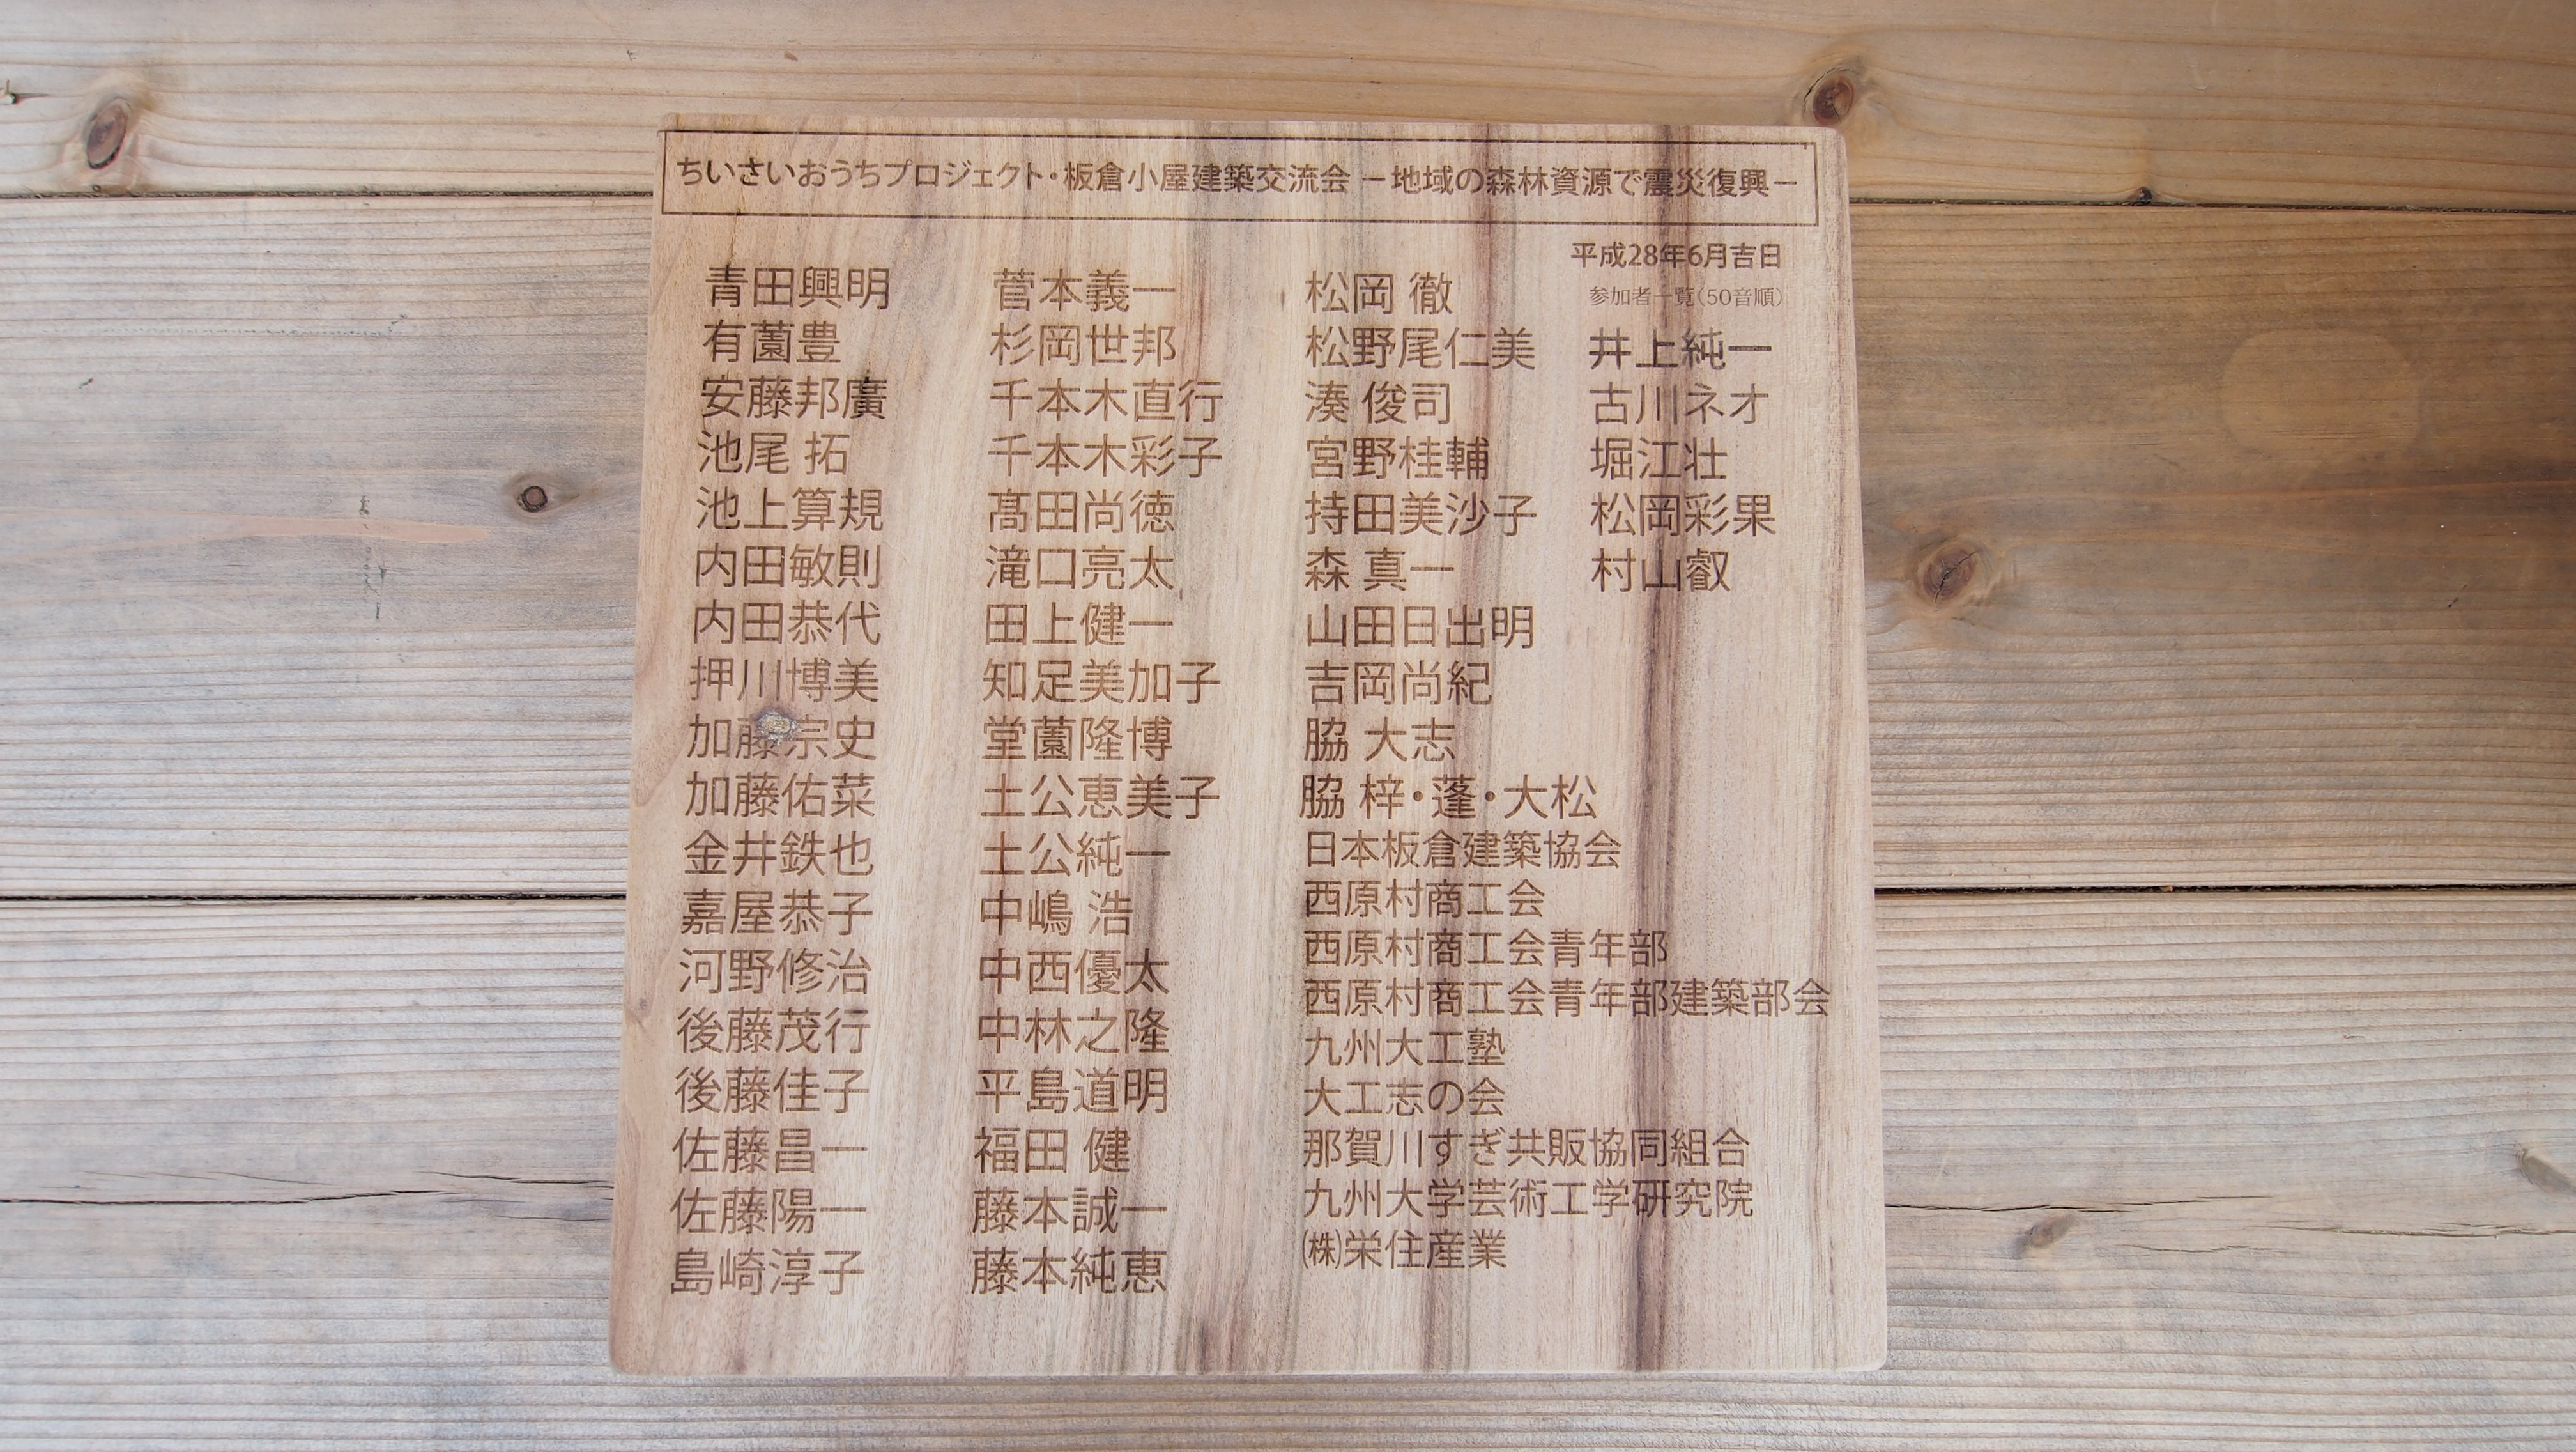 ちいさいおうちプロジェクト・板倉小屋建築交流会 ー地域の森林資源で震災復興ー
平成28年6月吉日
参加者一覧(50音順)
青田興明
有薗豊
安藤邦廣
池尾 拓
池上算規
内田敏則
内田恭代
押川博美
加藤宗史
加藤佑菜
金井鉄也
嘉屋恭子
河野修治
後藤茂行
後藤佳子
佐藤昌一
佐藤陽一
島崎淳子
菅本義一
杉岡世邦
千本木直行
千本木彩子
髙田尚徳
滝口亮太
田上健一
知足美加子
堂薗隆博
土公恵美子
土公純一
中嶋 浩
中西優太
中林之隆
平島道明
福田 健
藤本誠一
藤本純恵
松岡 徹
松野尾仁美
湊 俊司
宮野桂輔
持田美沙子
森 真一
山田日出明
吉岡尚紀
脇 大志
脇 梓・蓬・大松
日本板倉建築協会
西原村商工会
西原村商工会青年部
西原村商工会青年部建築部会
九州大工塾
大工志の会
那賀川すぎ共販協同組合
九州大学芸術工学研究院
㈱栄住産業
井上純一
古川ネオ
堀江壮
松岡彩果
村山叡